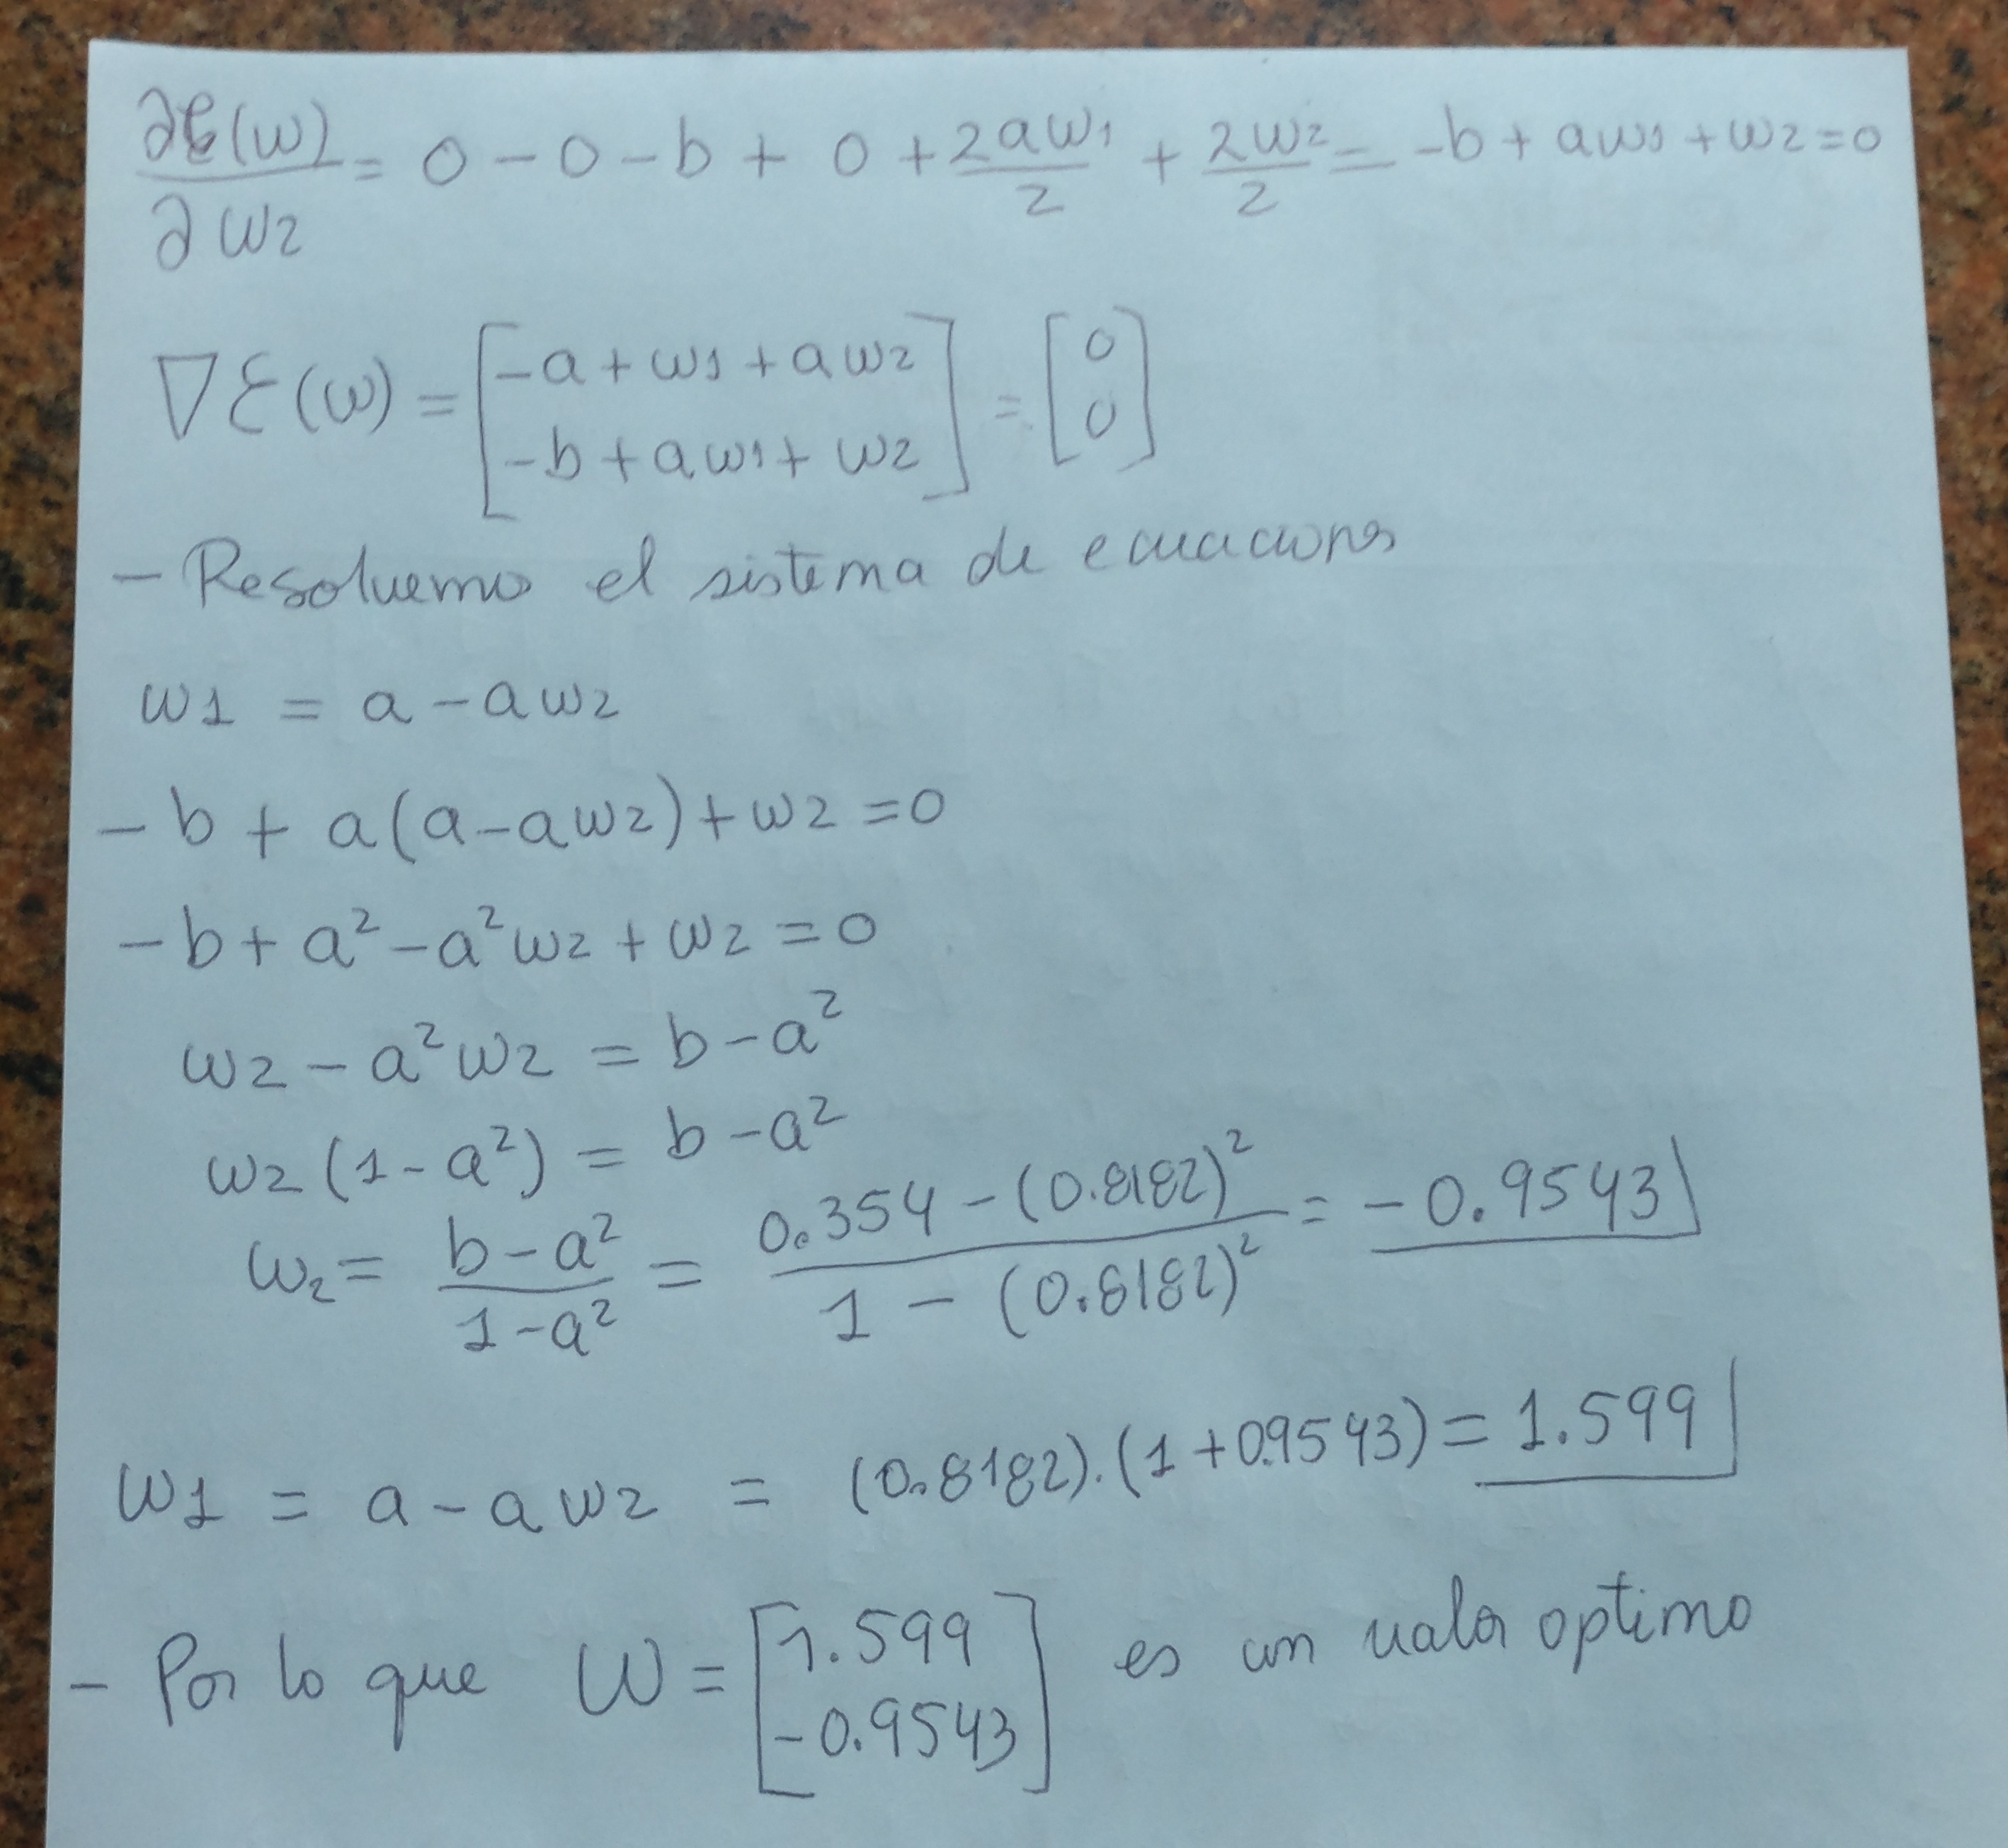 ∂ℰ(w)/∂w2 = 0 - 0 - b + 0 + 2aw1/2 + 2w2/2 = -b + aw1 + w2 = 0
∇ℰ(w) = [-a + w1 + aw2; -b + aw1 + w2] = [0; 0]
- Resolvemos el sistema de ecuaciones
w1 = a - aw2
- b + a(a - aw2) + w2 = 0
- b + a² - a²w2 + w2 = 0
w2 - a²w2 = b - a²
w2(1 - a²) = b - a²
w2 = (b - a²)/(1 - a²) = (0.354 - (0.8182)²)/(1 - (0.8182)²) = -0.9543
w1 = a - aw2 = (0.8182).(1 + 0.9543) = 1.599
- Por lo que W = [1.599; -0.9543] es un valor optimo